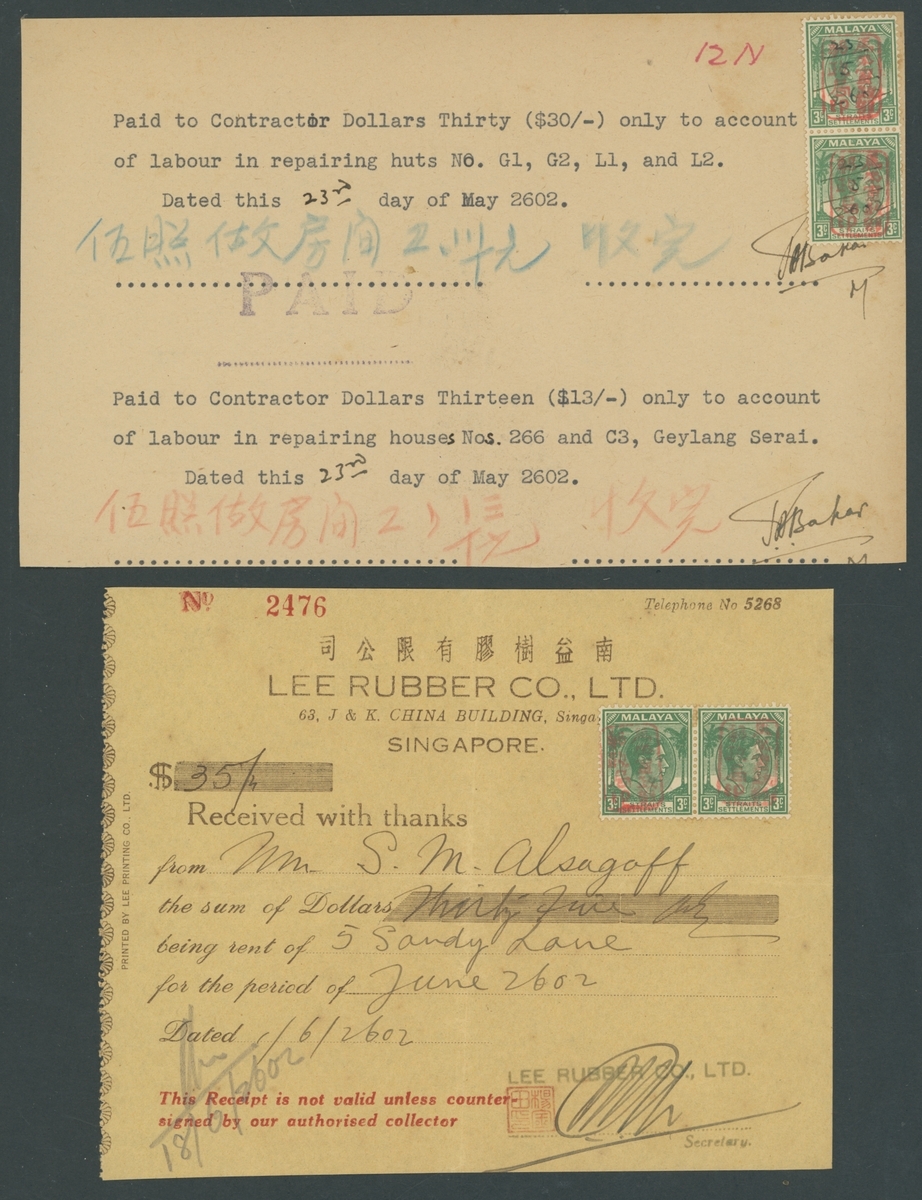 12 N
MALAYA
3c
STRAITS SETTLEMENTS
3c
MALAYA
3c
STRAITS SETTLEMENTS
3c
Paid to Contractor Dollars Thirty ($30/-) only to account
of labour in repairing huts No. G1, G2, L1, and L2.
Dated this 23rd day of May 2602.
伍照做房间工卅元 收完
PAID
Paid to Contractor Dollars Thirteen ($13/-) only to account
of labour in repairing houses Nos. 266 and C3, Geylang Serai.
Dated this 23rd day of May 2602.
伍照做房间工 收完
Nº 2476
Telephone No 5268
司公限有膠樹益南
LEE RUBBER CO., LTD.
63, J & K. CHINA BUILDING, Singa
SINGAPORE.
MALAYA
3c
STRAITS SETTLEMENTS
3c
MALAYA
3c
STRAITS SETTLEMENTS
3c
$ 35/-
Received with thanks
from Mr. S. M. Alsagoff
the sum of Dollars Thirty five only
being rent of 5 Sandy Lane
for the period of June 2602
Dated 1/6/2602
18/6/2602
LEE RUBBER CO., LTD.
This Receipt is not valid unless counter-
signed by our authorised collector
Secretary.
PRINTED BY LEE PRINTING CO., LTD.